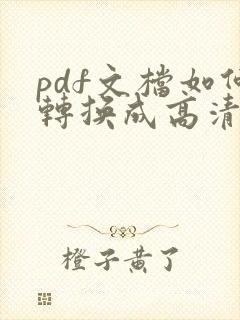 pdf文檔如何
轉換成高清
橙子黃了